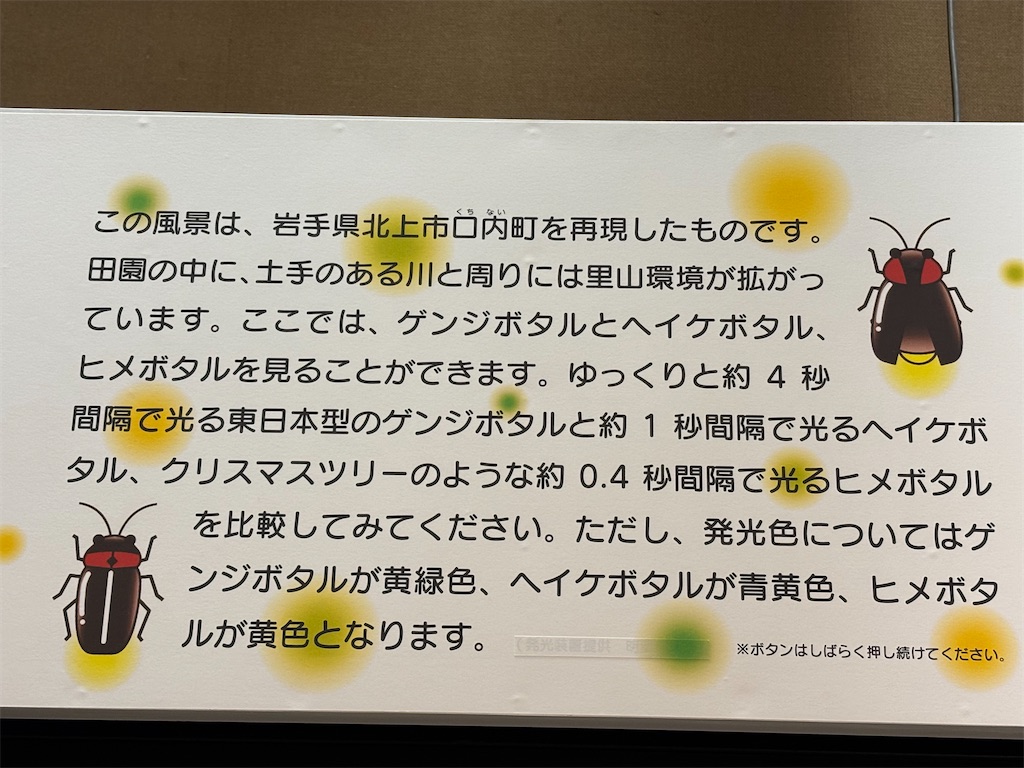 この風景は、岩手県北上市口内町を再現したものです。
くち ない
田園の中に、土手のある川と周りには里山環境が拡がっ
ています。ここでは、ゲンジボタルとヘイケボタル、
ヒメボタルを見ることができます。ゆっくりと約 4 秒
間隔で光る東日本型のゲンジボタルと約 1 秒間隔で光るヘイケボ
タル、クリスマスツリーのような約 0.4 秒間隔で光るヒメボタル
を比較してみてください。ただし、発光色についてはゲ
ンジボタルが黄緑色、ヘイケボタルが青黄色、ヒメボタ
ルが黄色となります。
※ボタンはしばらく押し続けてください。